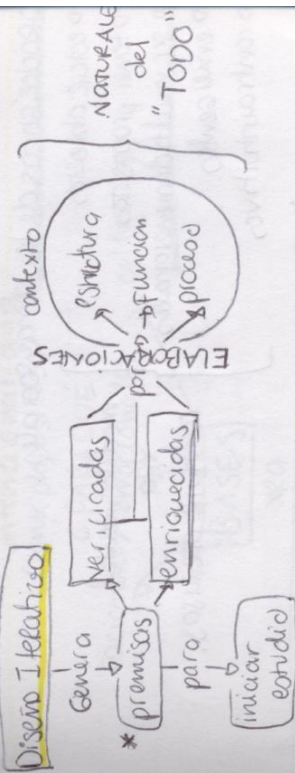 Diseño Iterativo
Genera
* premisas
para
iniciar
estudio
verificadas
enriquecidas
por
ELABORACIONES
contexto
estructura
Función
proceso
NATURALE
del
"TODO"